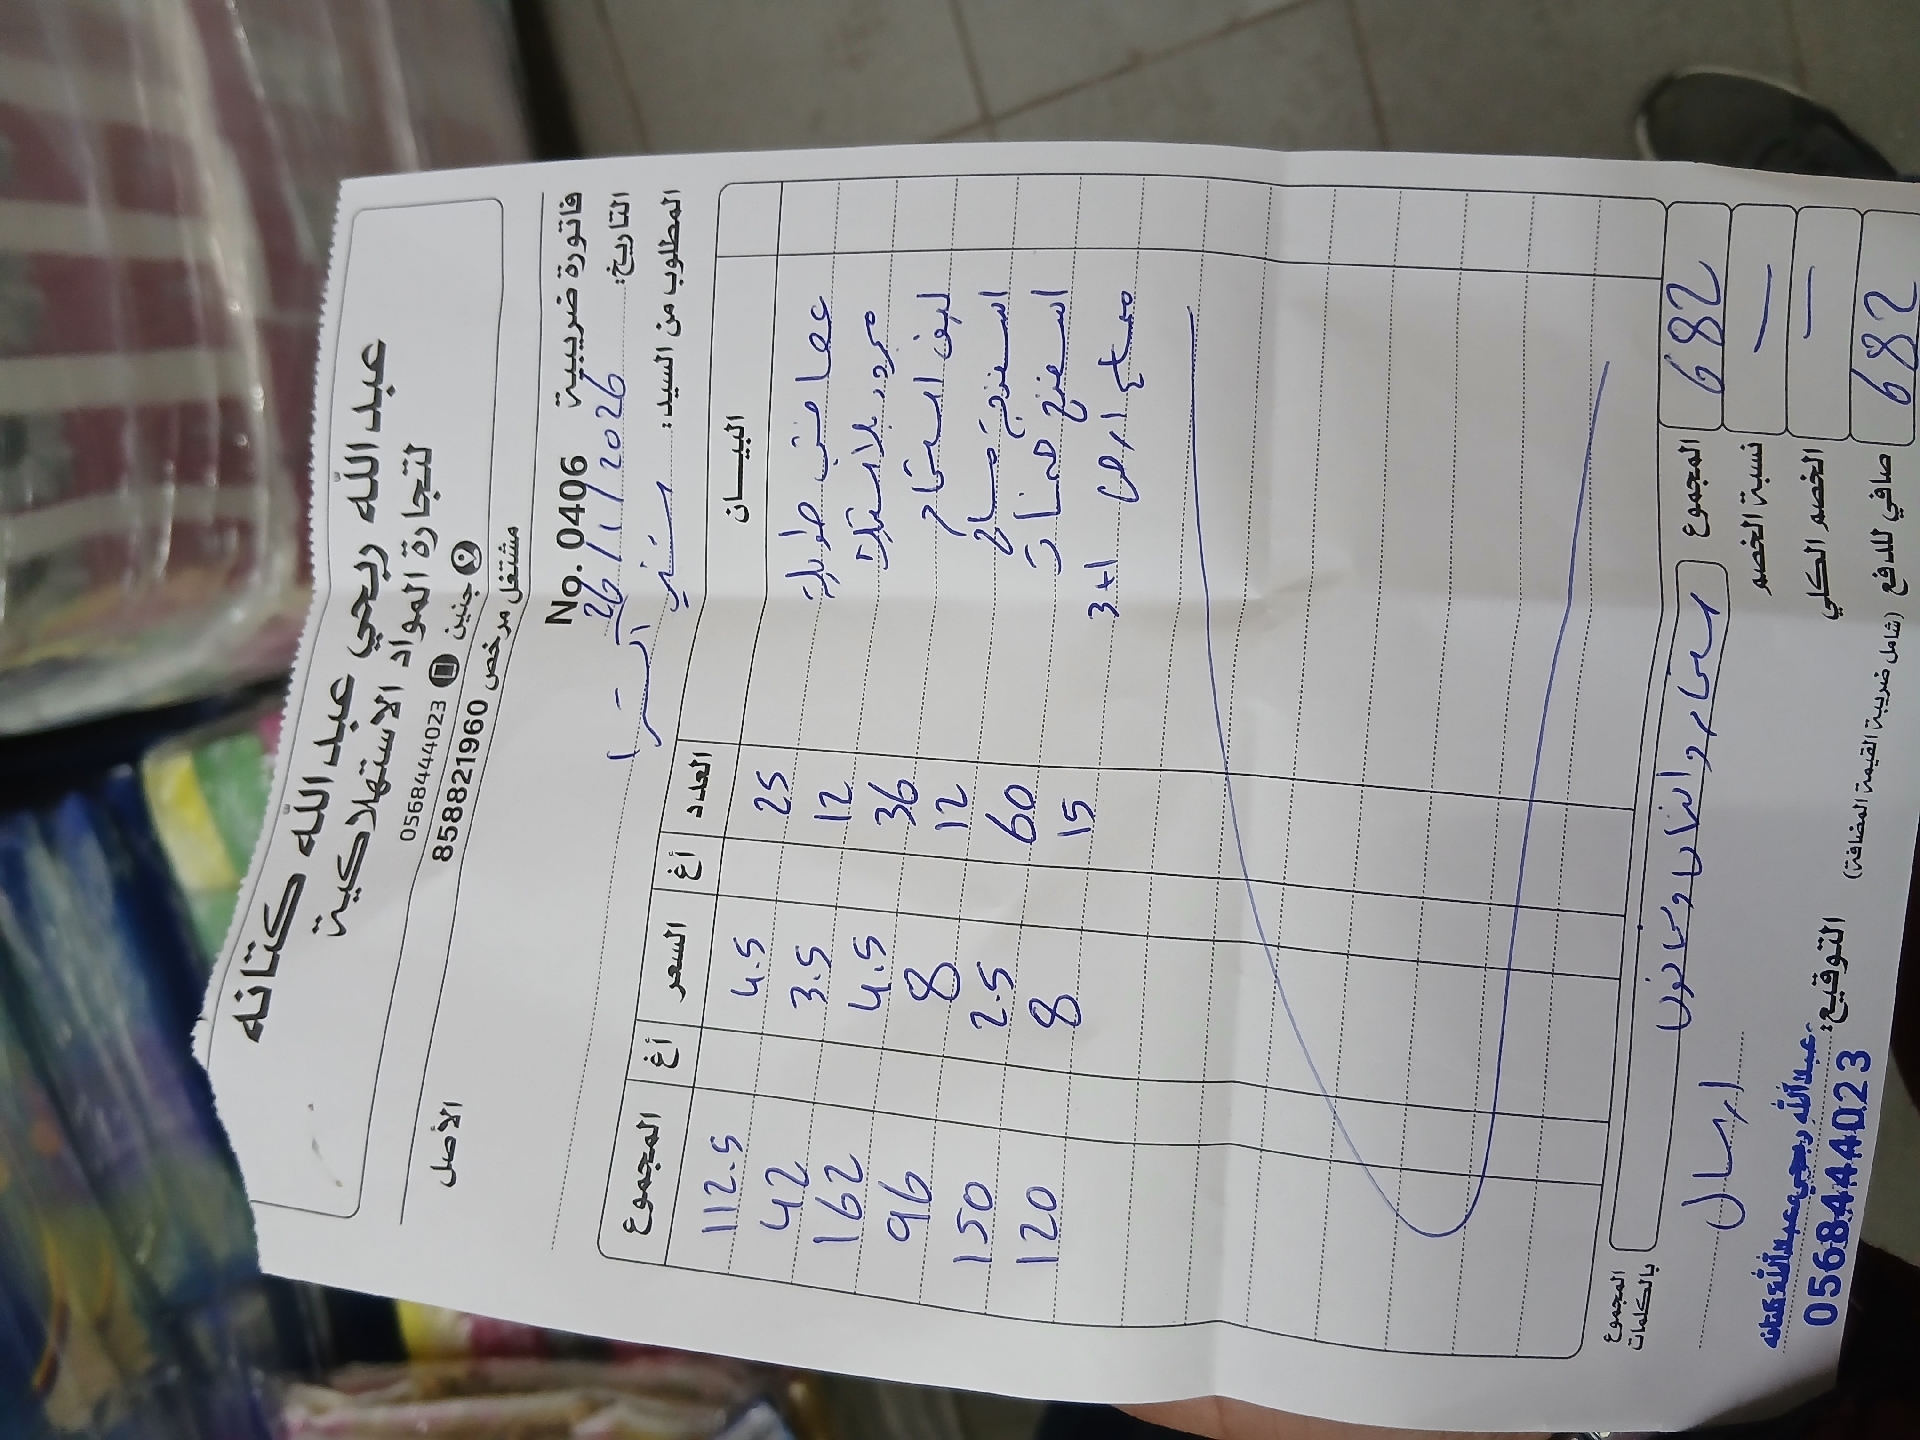 عبد الله ربحي عبد الله كتانه
لتجارة المواد الاستهلاكية
جنين 0568444023
الأصل مشتغل مرخص 858821960
فاتورة ضريبية No. 0406
التاريخ: 26/1/2026
المطلوب من السيد: سنتر
البيـــان العدد أغ السعر أغ المجموع
عصا خشب طويلة 25 4.5 112.5
مجرود بلاستيك 12 3.5 42
ليف استحمام 36 4.5 162
اسفنج 12 8 96
اسفنج 60 2.5 150
ارض 3+1 15 8 120
المجموع 682
نسبة الخصم —
الخصم الكلي —
صافي للدفع 682
(شامل ضريبة القيمة المضافة)
المجموع بالكلمات ستمائة واثنان وثمانون
ارسال
التوقيع:
عبدالله ربحي عبدالله كتانه
0568444023